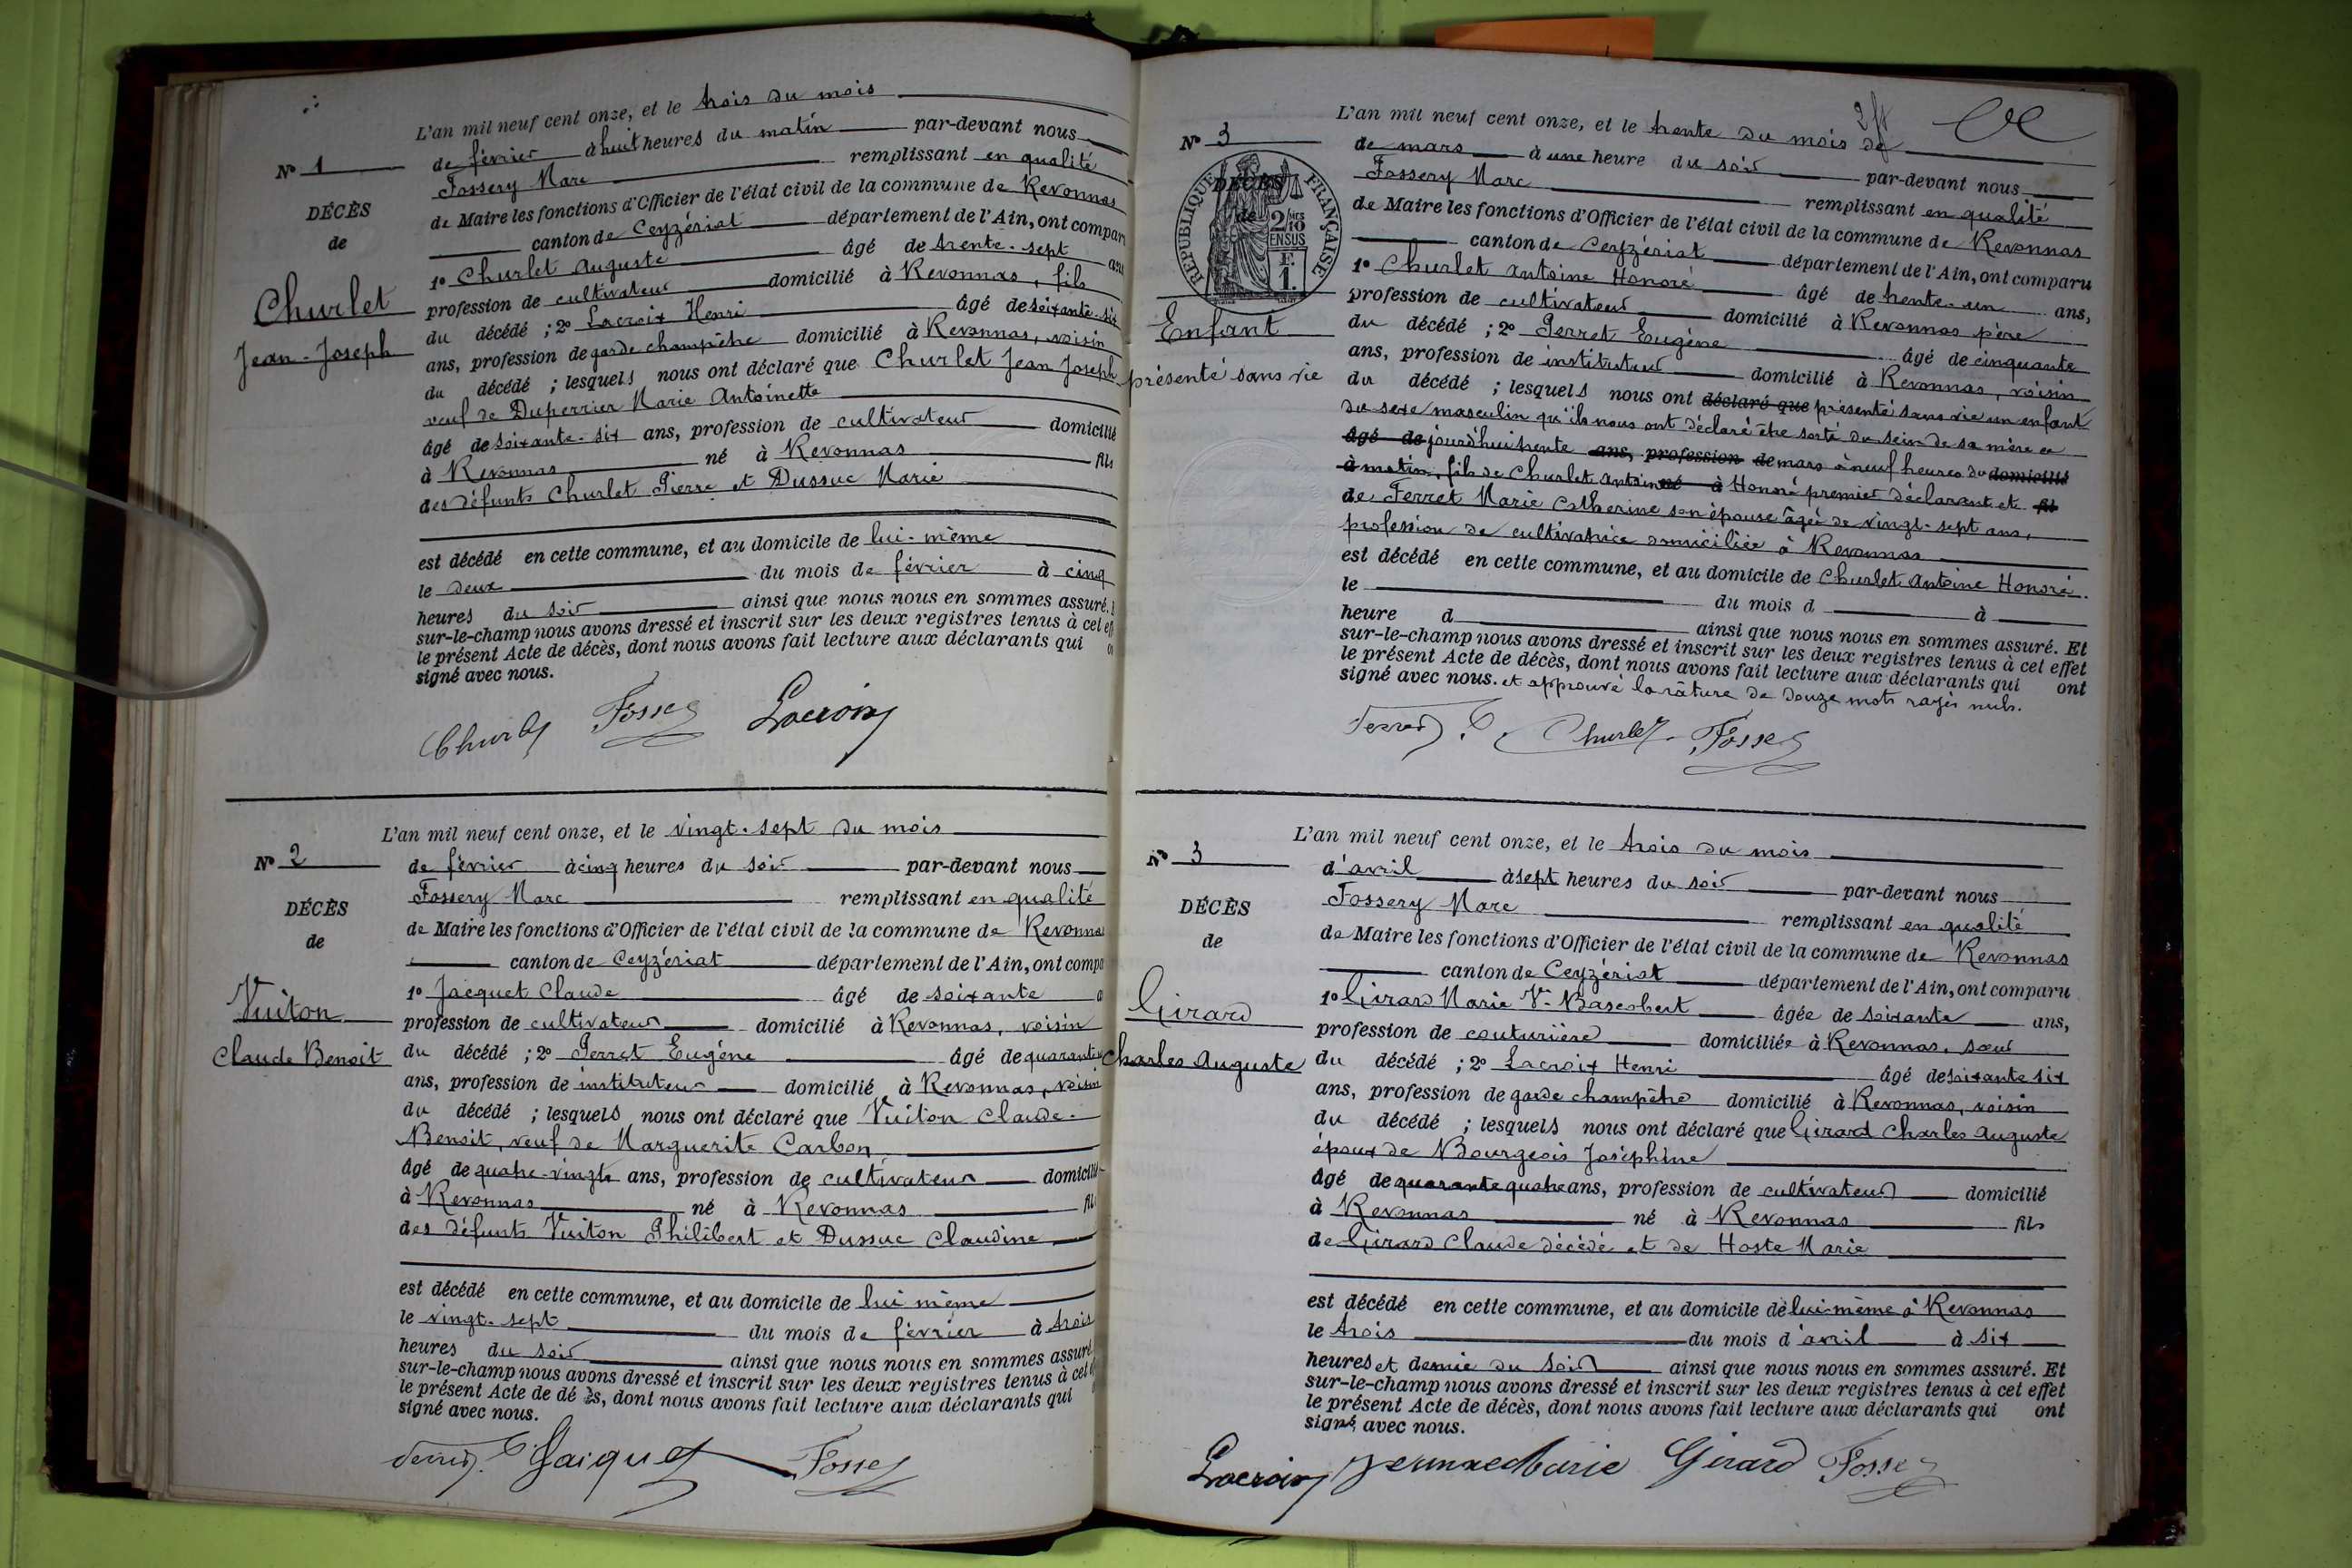 L'an mil neuf cent onze, et le trois du mois
N° 1
de février à huit heures du matin par-devant nous
Fossery Marc remplissant en qualité
DÉCÈS
de Maire les fonctions d'Officier de l'état civil de la commune de Revonnas
de
canton de Ceyzériat département de l'Ain, ont comparu
1° Churlet Auguste âgé de trente-sept ans
Churlet
profession de cultivateur domicilié à Revonnas, fils
du décédé ; 2° Lacroix Henri âgé de soixante-six
Jean-Joseph
ans, profession de garde champêtre domicilié à Revonnas, voisin
du décédé ; lesquels nous ont déclaré que Churlet Jean Joseph
veuf de Duperrier Marie Antoinette
âgé de soixante-six ans, profession de cultivateur domicilié
à Revonnas né à Revonnas fils
des défunts Churlet Pierre et Dussuc Marie
est décédé en cette commune, et au domicile de lui-même
le deux du mois de février à cinq
heures du soir ainsi que nous nous en sommes assuré.
sur-le-champ nous avons dressé et inscrit sur les deux registres tenus à cet eff
le présent Acte de décès, dont nous avons fait lecture aux déclarants qui o
signé avec nous.
Churlet Fossey Lacroix
L'an mil neuf cent onze, et le vingt-sept du mois
N° 2
de février à cinq heures du soir par-devant nous
Fossery Marc remplissant en qualité
DÉCÈS
de Maire les fonctions d'Officier de l'état civil de la commune de Revonna
de
canton de Ceyzériat département de l'Ain, ont compa
1° Jacquet Claude âgé de soixante a
Vuiton
profession de cultivateur domicilié à Revonnas, voisin
Claude Benoit
du décédé ; 2° Perret Eugène âgé de quarante
ans, profession de instituteur domicilié à Revonnas, voisin
du décédé ; lesquels nous ont déclaré que Vuiton Claude-
Benoit, veuf de Marguerite Carbon
âgé de quatre-vingts ans, profession de cultivateur domicilié
à Revonnas né à Revonnas fils
des défunts Vuiton Philibert et Dussuc Claudine
est décédé en cette commune, et au domicile de lui même
le vingt-sept du mois de février à trois
heures du soir ainsi que nous nous en sommes assuré
sur-le-champ nous avons dressé et inscrit sur les deux registres tenus à cet
le présent Acte de dé ès, dont nous avons fait lecture aux déclarants qui
signé avec nous.
Perret E. Jaiquet Fossey
2 ft
L'an mil neuf cent onze, et le trente du mois de
N° 3
de mars à une heure du soir par-devant nous
Fossery Marc remplissant en qualité
DÉCÈS
de
RÉPUBLIQUE FRANÇAISE
2/10 EN SUS
F.
1.
de Maire les fonctions d'Officier de l'état civil de la commune de Revonnas
canton de Ceyzériat département de l'Ain, ont comparu
1° Churlet Antoine Honoré âgé de trente-un ans,
profession de cultivateur domicilié à Revonnas père
Enfant
du décédé ; 2° Perret Eugène âgé de cinquante
ans, profession de instituteur domicilié à Revonnas, voisin
présenté sans vie
du décédé ; lesquels nous ont déclaré que présenté sans vie un enfant
du sexe masculin qu'ils nous ont déclaré être sorti du sein de sa mère ce
âgé de jourd'hui trente ans, profession de mars à neuf heures du domicilié
à matin, fils de Churlet Antoine né à Honoré premier déclarant et fil
de Ferret Marie Catherine son épouse âgée de vingt-sept ans,
profession de cultivatrice domiciliée à Revonnas
est décédé en cette commune, et au domicile de Churlet Antoine Honoré.
le du mois d à
heure d ainsi que nous nous en sommes assuré. Et
sur-le-champ nous avons dressé et inscrit sur les deux registres tenus à cet effet
le présent Acte de décès, dont nous avons fait lecture aux déclarants qui ont
signé avec nous. et approuvé la râture de douze mots rayés nuls.
Perret E. Churlet Fossey
L'an mil neuf cent onze, et le trois du mois
N° 3
d'avril à sept heures du soir par-devant nous
Fossery Marc remplissant en qualité
DÉCÈS
de Maire les fonctions d'Officier de l'état civil de la commune de Revonnas
de
canton de Ceyzériat département de l'Ain, ont comparu
1° Girard Marie Vᵉ Bascobert âgée de soixante ans,
Girard
profession de couturière domiciliée à Revonnas, sœur
Charles Auguste
du décédé ; 2° Lacroix Henri âgé de soixante six
ans, profession de garde champêtre domicilié à Revonnas, voisin
du décédé ; lesquels nous ont déclaré que Girard Charles Auguste
époux de Bourgeois Joséphine
âgé de quarante quatre ans, profession de cultivateur domicilié
à Revonnas né à Revonnas fils
de Girard Claude décédé et de Hoste Marie
est décédé en cette commune, et au domicile de lui-même à Revonnas
le trois du mois d'avril à six
heures et demie du soir ainsi que nous nous en sommes assuré. Et
sur-le-champ nous avons dressé et inscrit sur les deux registres tenus à cet effet
le présent Acte de décès, dont nous avons fait lecture aux déclarants qui ont
signé avec nous.
Lacroix Marie Girard Fossey